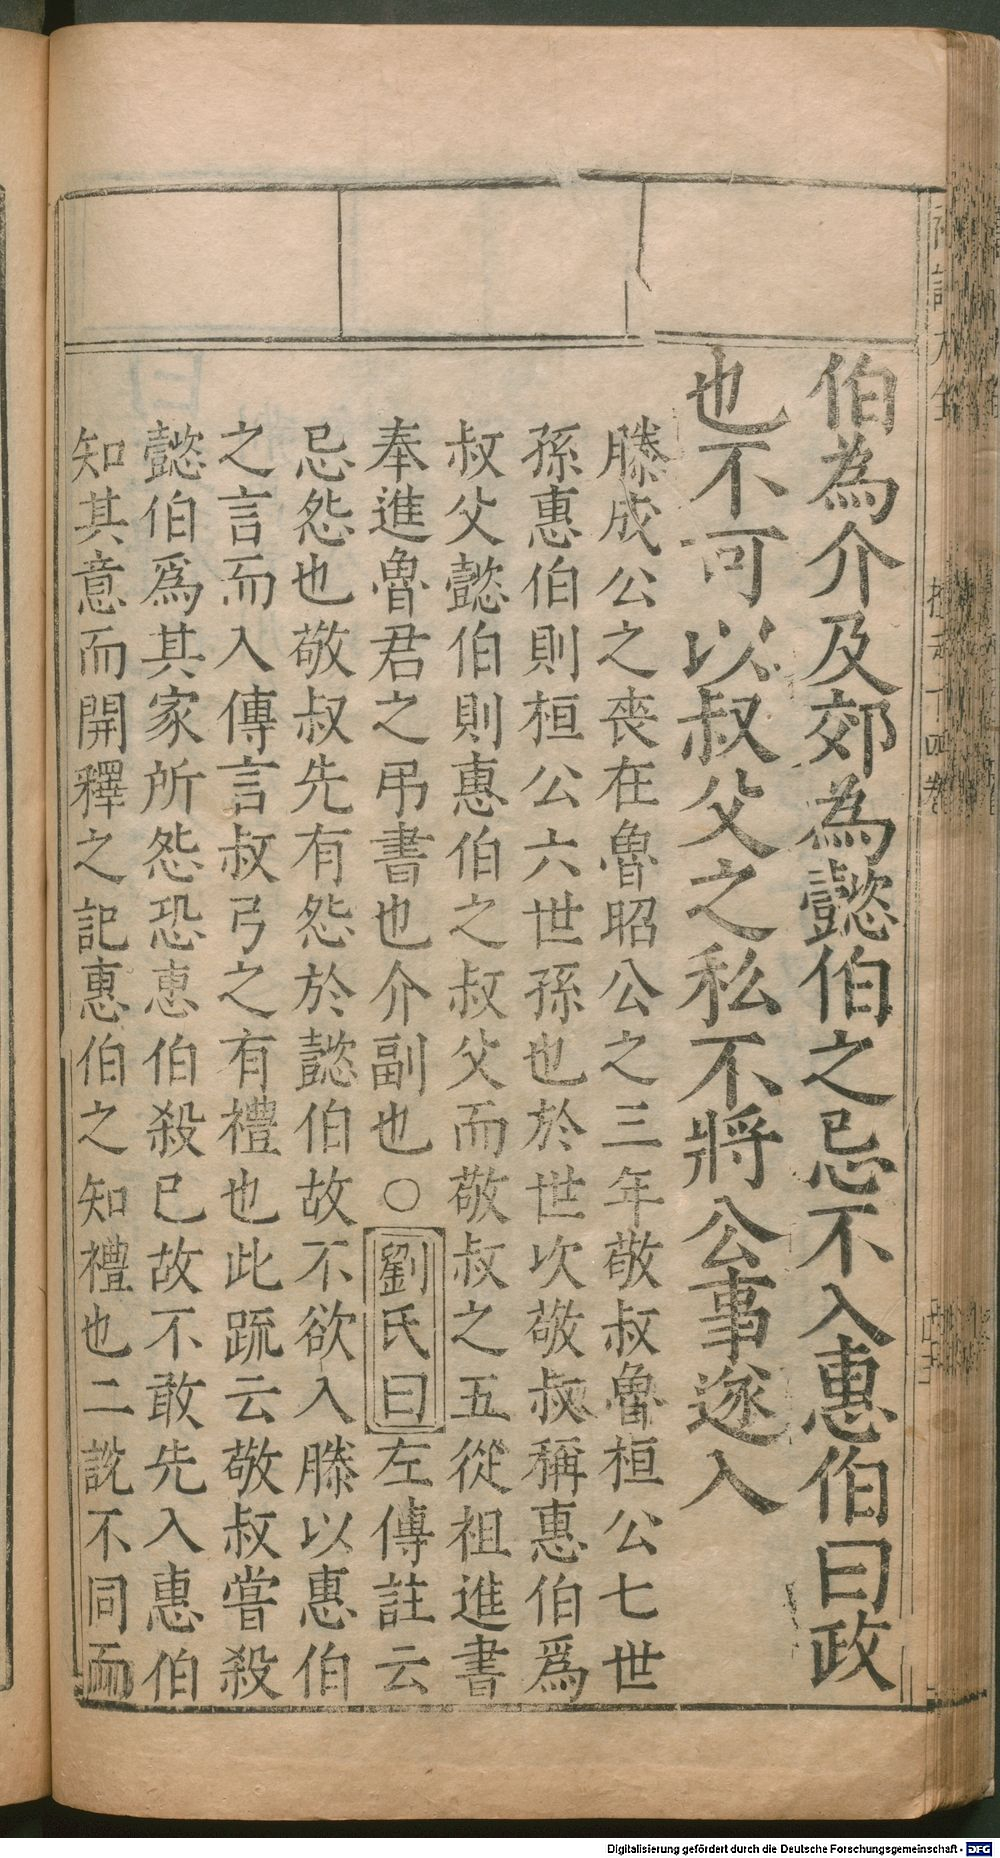 伯為介及郊為懿伯之忌不入惠伯曰政
也不可以叔父之私不將公事遂入
滕成公之喪在魯昭公之三年敬叔魯桓公七世
孫惠伯則桓公六世孫也於世次敬叔稱惠伯爲
叔父懿伯則惠伯之叔父而敬叔之五從祖進書
奉進魯君之弔書也介副也○劉氏曰左傳註云
忌怨也敬叔先有怨於懿伯故不欲入滕以惠伯
之言而入傳言叔弓之有禮也此疏云敬叔嘗殺
懿伯爲其家所怨恐惠伯殺已故不敢先入惠伯
知其意而開釋之記惠伯之知禮也二說不同而
Digitalisierung gefördert durch die Deutsche Forschungsgemeinschaft - DFG